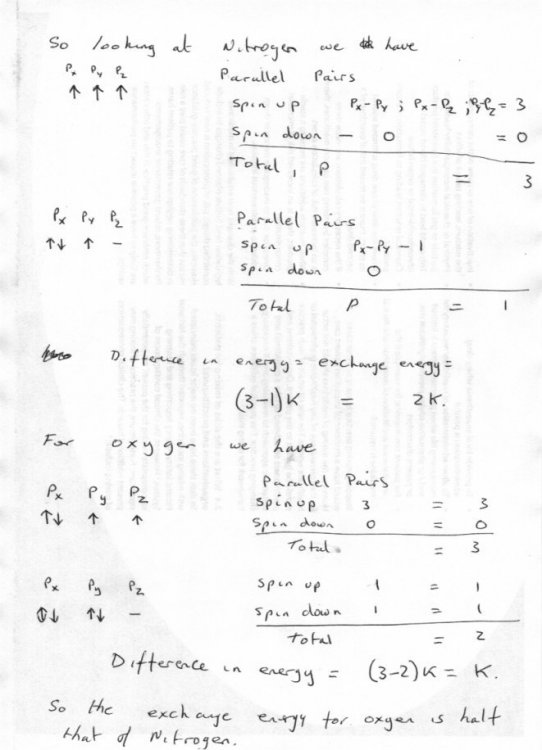 So looking at Nitrogen we have
Px Py Pz Parallel Pairs
↑ ↑ ↑ spin up Px-Py ; Px-Pz ; Py-Pz = 3
spin down - 0 = 0
Total, P = 3
Px Py Pz Parallel Pairs
↑↓ ↑ - spin up Px-Py - 1
spin down 0
Total P = 1
Difference in energy = exchange energy =
(3-1)K = 2K.
For oxygen we have
Parallel Pairs
Px Py Pz spin up 3 = 3
↑↓ ↑ ↑ spin down 0 = 0
Total = 3
Px Py Pz spin up 1 = 1
↑↓ ↑↓ - spin down 1 = 1
total = 2
Difference in energy = (3-2)K = K.
So the exchange energy for oxgen is half
that of Nitrogen.